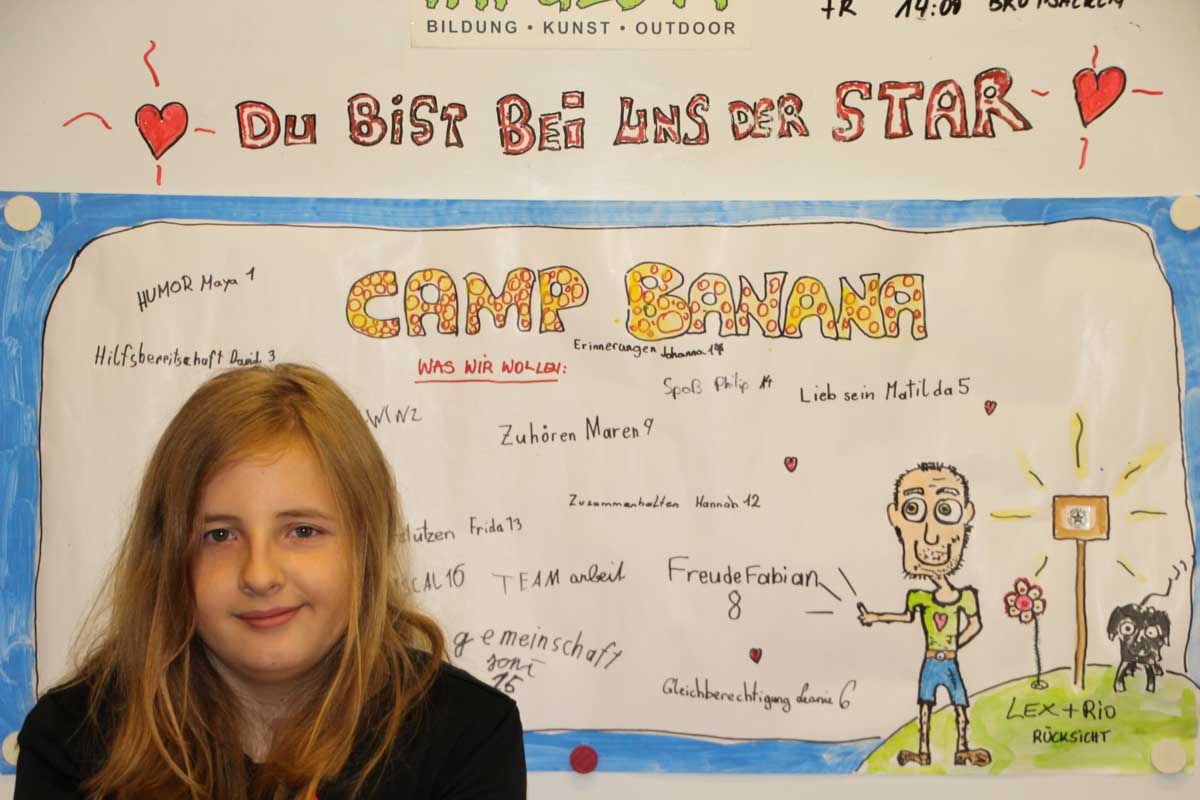 BILDUNG • KUNST • OUTDOOR
FR 14:00
DU BIST BEI UNS DER STAR
CAMP BANANA
HUMOR Maya 1
Erinnerungen Johanna 17
Hilfsbereitschaft David 3
WAS WIR WOLLEN:
Spoß Philip 14
Lieb sein Matilda 5
Zuhören Maren 9
Zusammenhalten Hannah 12
stützen Frida 13
CAL 16
TEAM arbeit
Freude Fabian
8
gemeinschaft
15
Gleichberechtigung Leanie 6
LEX + RiO
RÜCKSICHT